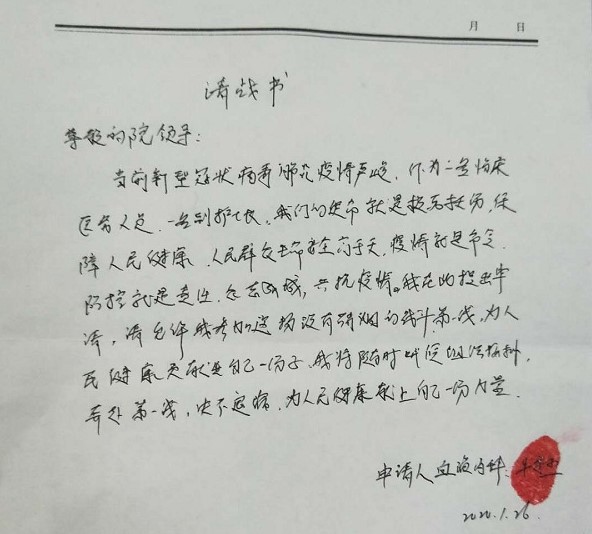 月 日
请战书
尊敬的院领导:
当前新型冠状病毒肺炎疫情严峻,作为一名临床
医务人员,一名副护士长,我们的使命就是救死扶伤,保
障人民健康,人民群众生命安全高于天,疫情就是命令,
防控就是责任,众志成城,共抗疫情。我在此提出申
请,请允许我参加这场没有硝烟的战斗第一线,为人
民健康贡献出自己一份子,我将随时听从组织指挥,
奔赴第一线,决不退缩,为人民健康献上自己一份力量.
申请人 血液内科:
2020.1.26